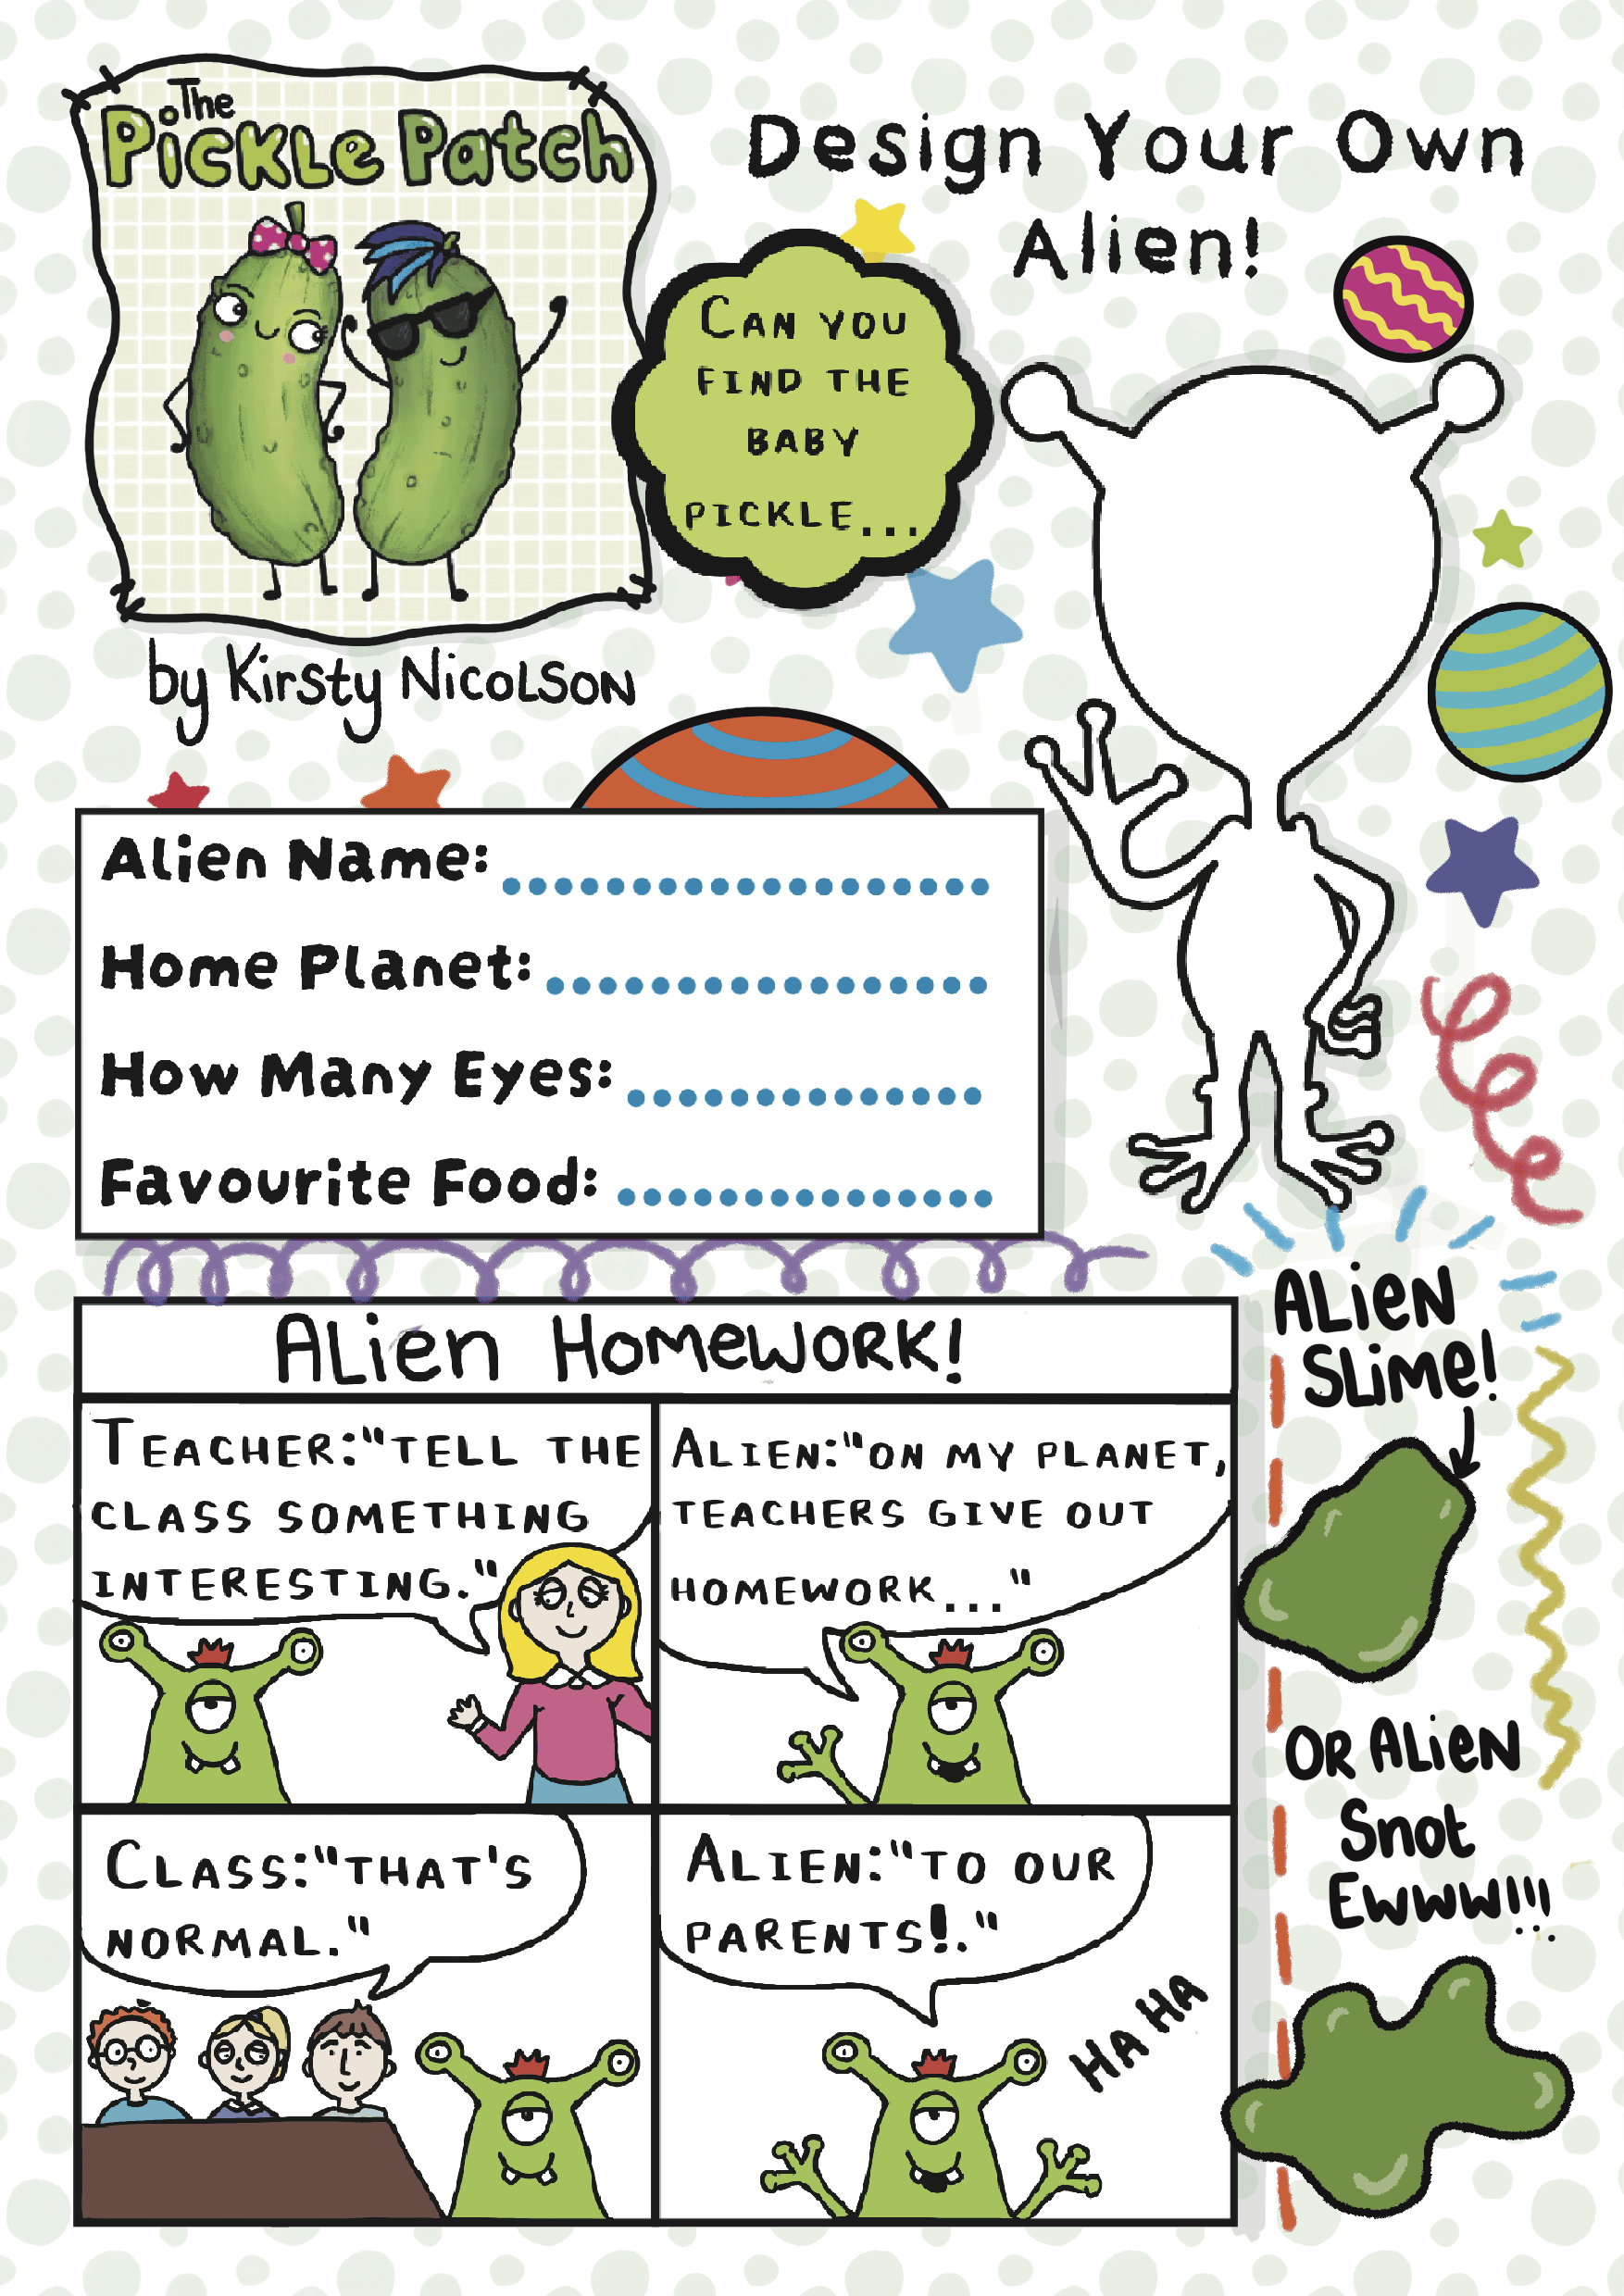 The
Pickle Patch
by Kirsty Nicolson
Design Your Own
Alien!
Can you
find the
baby
pickle...
Alien Name:
Home Planet:
How Many Eyes:
Favourite Food:
Alien Homework!
Teacher:"tell the
class something
interesting."
Alien:"on my planet,
teachers give out
homework..."
Class:"that's
normal."
Alien:"to our
parents!."
HA HA
Alien
Slime!
or Alien
Snot
Ewww!!!